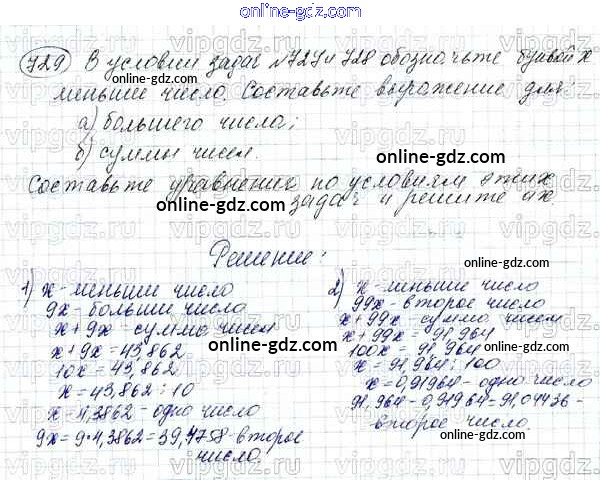 online-gdz.com
729 В условии задач №727 и 728 обозначьте буквой х
меньшее число. Составьте выражение для:
а) большего числа;
б) суммы чисел.
Составьте уравнение по условиям этих
задач и решите их.
Решение:
1) х - меньшее число
9х - большее число
х + 9х - сумма чисел
х + 9х = 43,862
10х = 43,862
х = 43,862 : 10
х = 4,3862 - одно число
9х = 9·4,3862 = 39,4758 - второе
число.
2) х - меньшее число
99х - второе число
х + 99х - сумма чисел
х + 99х = 91,964
100х = 91,964
х = 91,964 : 100
х = 0,91964 - одно число
91,964 - 0,91964 = 91,04436 -
второе число.
online-gdz.com
online-gdz.com
online-gdz.com
online-gdz.com
online-gdz.com
online-gdz.com
online-gdz.com
online-gdz.com